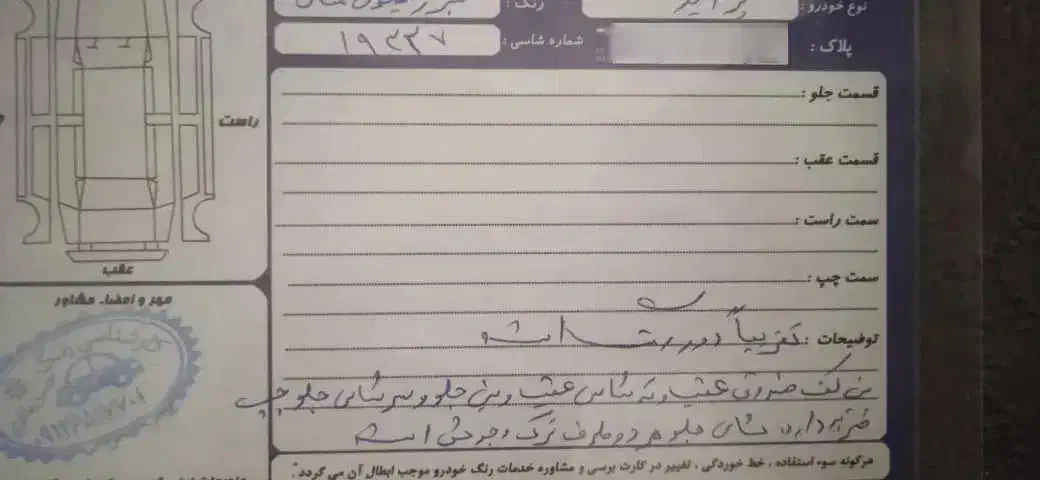 نوع خودرو: پراید
رنگ:
پلاک:
شماره شاسی: ۱۹۴۳۷
قسمت جلو:
قسمت عقب:
سمت راست:
سمت چپ:
راست
عقب
مهر و امضاء مشاور
توضیحات: تقریباً دور رنگ است
سینی کف صندوق عقب و ته شاسی عقب و سینی جلو و سر شاسی جلو چپ
ضربه دارد، شاسی جلو هر دو طرف ترک و جوش است
هرگونه سوء استفاده، خط خوردگی، تغییر در کارت برسی و مشاوره خدمات رنگ خودرو موجب ابطال آن می گردد.